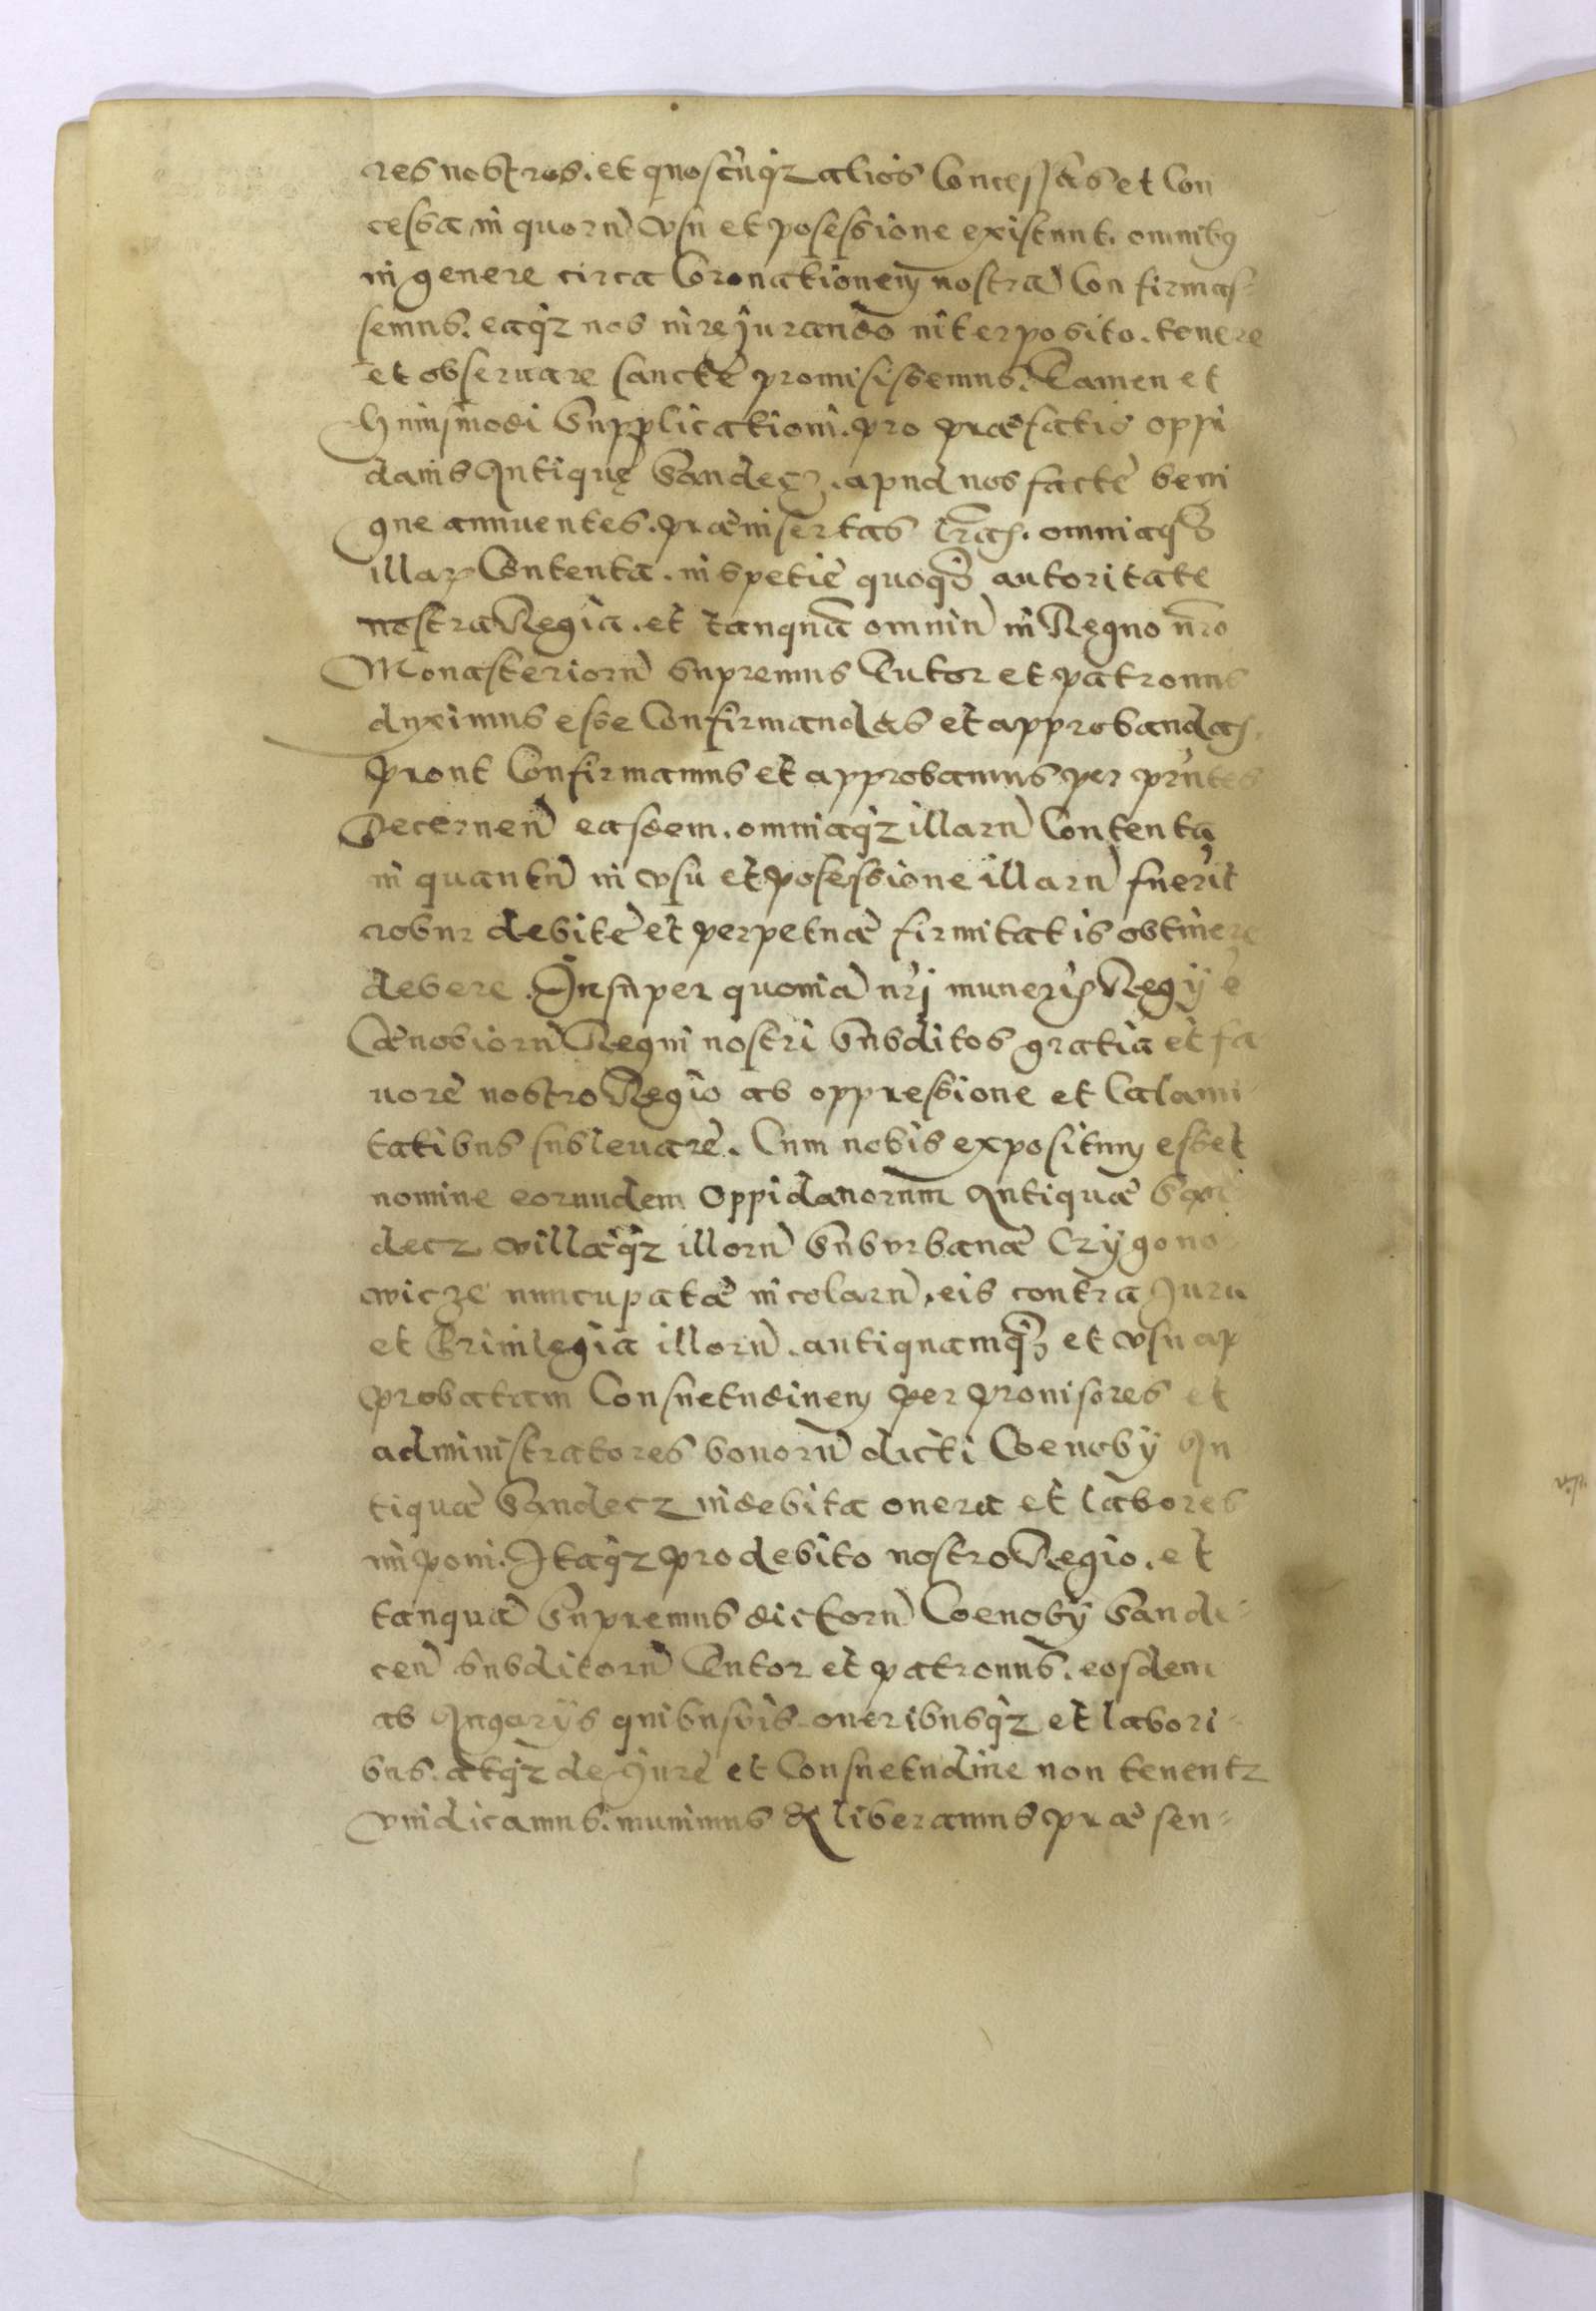 res nostros. et quoscūq₃ alios Concessas et Con
cessa, in quorū vsu et posessione existunt. omnibꝰ
in genere circa Coronationem nostrā Confirmas-
semus. eaq₃ nos iureiurando interposito. tenere
et obseruare sanctè promisissemus. Tamen et
huiusmodi Supplicationi. pro præfatis oppi
danis Antiquę Sandecz. apud nos factè beni
gne annuentes. præinsertas l̃ras. omniaq₃
illaꝝ Contenta. in spetiè quoq₃ autoritate
nostra Regia. et tanquā omniū in Regno nr̃o
Monasteriorū supremus Tutor et patronus
duximus esse Confirmandas et approbandas.
prout Confirmamus et approbamus per pr̃ntes
Decernen̄ easdem. omniaq₃ illarū Contenta
in quantū in vsu et posessione illarū fuerit
robur debitè et perpetuæ firmitatis obtinere
debere. Insuper quoniā nr̃j muneris Regÿ è
Cænobiorū Regni nostri Subditos gratia et fa
uorè nostro Regio ab oppressione et Calami-
tatibus subleuarè. Cum nobis expositum esset
nomine eorundem Oppidanorum Antiquæ San
decz villæq₃ illorū Suburbanæ Czygono-
wicze nuncupatæ incolarū, eis contra Jura
et Priuilegia illorū. antiquamq₃ et vsu ap
probatam Consuetudinem per prouisores et
administratores bonorū dicti Coenobÿ An
tiquæ Sandecz indebita onera et labores
imponi. Itaq₃ pro debito nostro Regio. et
tanquā Supremus dictorū Coenobÿ Sande-
cen̄ Subditorū Tutor et patronus. eosdem
ab Angarÿs quibusuis oneribusq₃ et labori-
bus. atq₃ de Jurè et Consuetudine non tenentz
vindicamus. munimus & liberamus præsen-